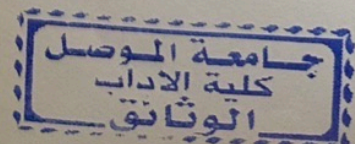 جامعة الموصل
كلية الاداب
الوثائق